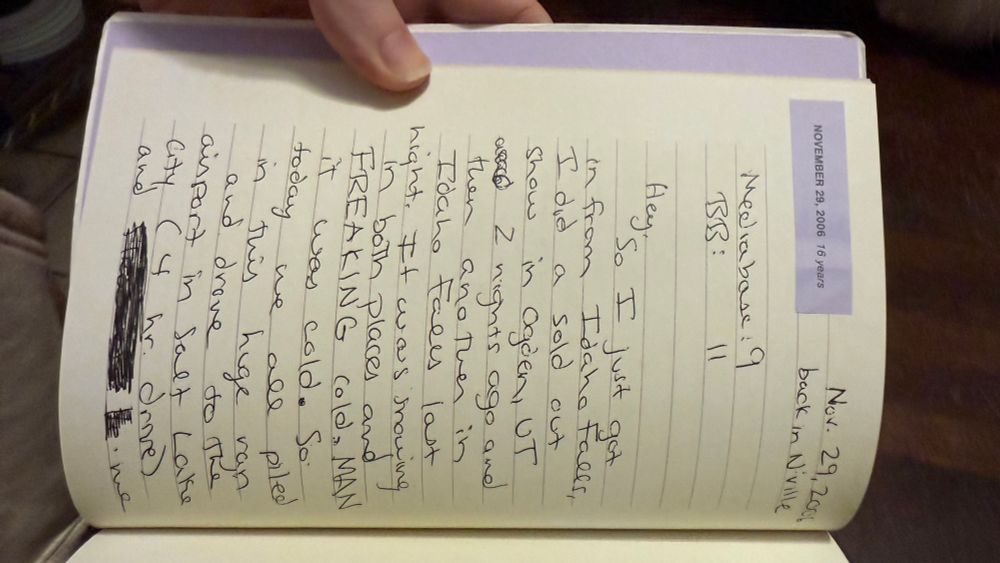 NOVEMBER 29, 2006 16 years
Nov. 29, 2006
back in N'ville
Mediabase: 9
BB: 11
Hey.
So I just got
in from Idaho Falls,
I did a sold out
show in Ogden, UT
2 nights ago and
then another in
Idaho Falls last
night. It was snowing
in both places and
FREAKING cold. MAN
it was cold. So
today we all piled
in this huge van
and drove to the
airport in Salt Lake
City (4 hr. drive)
and me